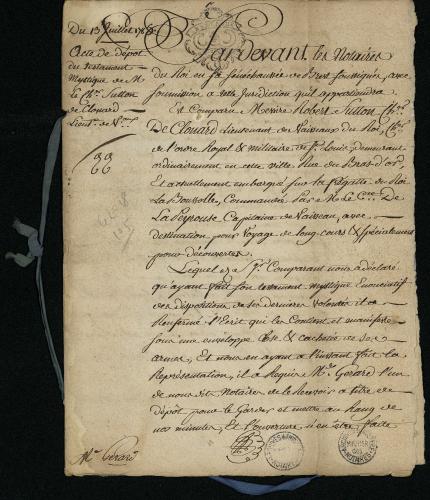 Du 13 Juillet 1785
Acte de dépôt
du testament
Mystique de M.
Le Ch.er Sutton
de Clonard
Lieut. de V.au
Pardevant les Notaires
du Roi en sa sénéchaussée de Brest soussignés, avec
soumission à cette jurisdiction qu'il appartiendra
Est comparu Messire Robert Sutton Ch.er
De Clonard Lieutenant de Vaisseaux du Roi, Ch.er
de l'ordre Royal & militaire de S.t Louis, demeurant
ordinairement en cette ville Rue du Bras d'or,
Et actuellement embarqué sur la frégatte du Roi
La Boussolle, Commandée par M. Le C.te De
La Peyrouse Capitaine de Vaisseau, avec
destination pour voyage de long cours & spécialement
pour découvertes.
Lequel S.r Comparant nous a déclaré
qu'ayant fait son testament mystique Enonciatif
des dispositions de ses dernieres volontés, il a
Renfermé l'Ecrit qui les Contient et manifeste
sous une enveloppe close & cachetée de ses
armes, Et nous en ayant à l'instant fait la
Représentation, il a Requis M.e Gerard l'un
de nous dits Notaires de le Recevoir à titre de
dépôt pour le Garder et mettre au Rang de
nos minutes, Et l'ouverture n'en être faite
M.e Gerard